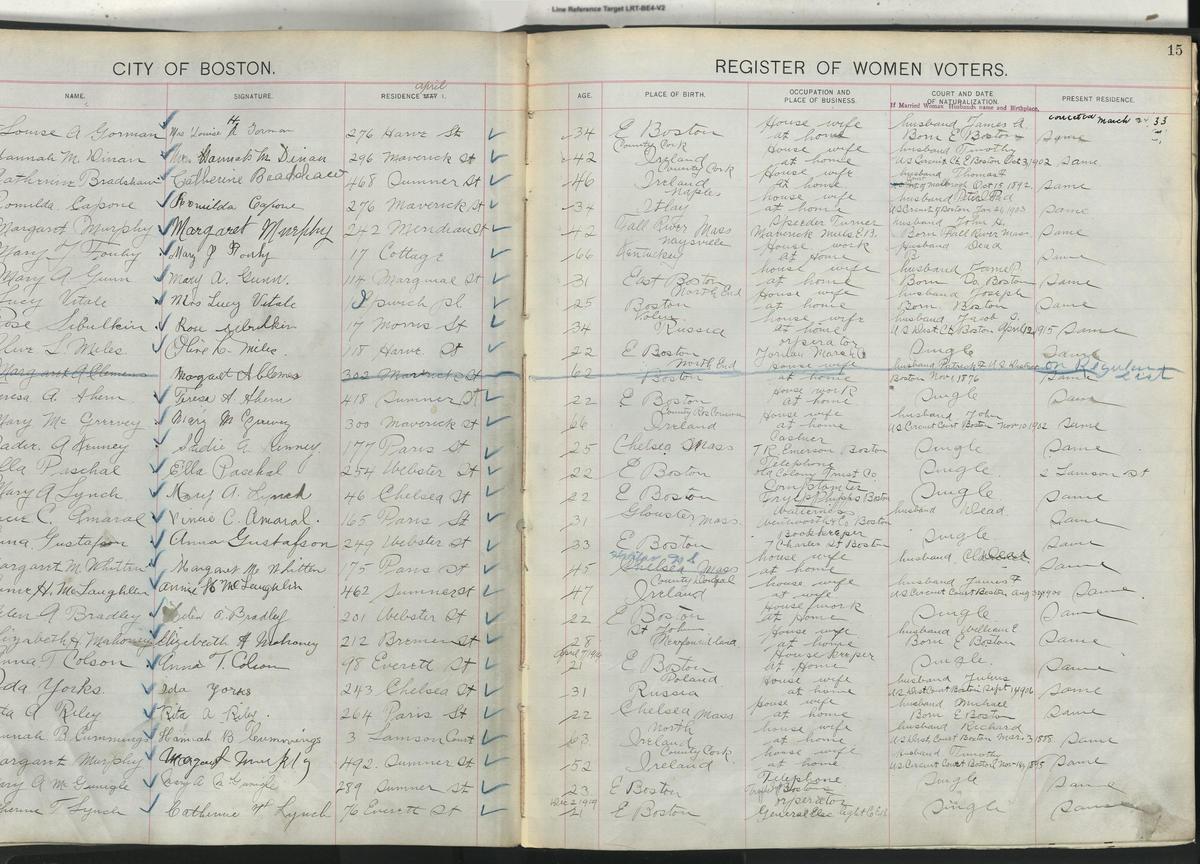 Line Reference Target LRT-BE4-V2
15
CITY OF BOSTON. REGISTER OF WOMEN VOTERS.
NAME. SIGNATURE. RESIDENCE MAY 1. April AGE. PLACE OF BIRTH. OCCUPATION AND PLACE OF BUSINESS. COURT AND DATE OF NATURALIZATION. If Married Woman Husbands name and Birthplace. PRESENT RESIDENCE.
Louise A Gorman Mrs Louise A Gorman 276 Harve St 34 E Boston House wife at home husband James A. Born E Boston Same
Hannah M. Dinan Mrs. Hannah M Dinan 296 Maverick St 42 County Cork Ireland House wife at home husband Timothy US Circuit Ct E Boston Oct 3, 1902 Same
Catherine Bradshaw Catherine Bradshaw 468 Sumner St 46 County Cork Ireland House wife at home husband Thomas F Oct 15, 1892 Same
Romilda Capone Romilda Capone 276 Maverick St 34 Naples Italy house wife at home husband Boston Jan 1903 Same
Margaret Murphy Margaret Murphy 242 Meridian St 42 Fall River Mass Speeder Turner Maverick Mills E.B. husband John H. Born Fall River Mass Same
Mary J. Mary J 17 Cottage 66 Maysville Kentucky House work at Home Husband Dead Same
Mary A Gunn Mary A. Gunn. 114 Marginal St 31 East Boston house wife at home husband James P. Born So. Boston Same
Lucy Vitale Mrs Lucy Vitale 9 Ipswich pl 25 North End Boston House wife at home husband Joseph Born Boston Same
Rose Sebulkin Rose Sebulkin 17 Morris St 34 Russia house wife at home husband Jacob S. US Dist Ct Boston April 12, 1915 Same
Olive L. Miles Olive L. Miles. 118 Harve St 22 E Boston operator Jordan Marsh Co Single Same
Margaret A Clemens Margaret A Clemens 303 Maverick St 62 North End Boston House wife at home husband Patrick F US District Boston Nov 1 1876 Same on Regular List
Teresa A. Ahern Teresa A. Ahern 418 Sumner St 22 E Boston House work at home Single Same
Mary Mc Greevey Mary Mc Greevey 300 Maverick St 66 County Roscommon Ireland House wife at home husband John US Circuit Court Boston Nov 10 1902 Same
Sadie A Kenney Sadie A Kenney. 177 Paris St 25 Chelsea Mass Cashier T R Emerson Boston Single Same
Ella Paschal Ella Paschal 254 Webster St 22 E Boston Telephone Old Colony Trust Co. Single 2 Lamson St
Mary A Lynch Mary A. Lynch 46 Chelsea St 22 E Boston Comptometer Boston Single Same
Vinie C. Amaral Vinie C. Amaral. 165 Paris St 31 Glouster Mass. Waitress Wentworth & Co Boston husband Dead. Same
Anna. Gustafson Anna Gustafson 249 Webster St 33 E Boston Bookkeeper 7 Charles St Boston Single Same
Margaret M Whitten Margaret M. Whitten 75 Paris St 45 Chelsea Mass house wife at home husband Dead Same
Annie H. McLaughlin Annie H McLaughlin 462 Sumner St 47 County Donegal Ireland house wife at wife husband James F US Circuit Court Boston Aug Same.
Helen A Bradley Helen A Bradley 201 Webster St 22 E Boston House work at home Single Same
Elizabeth A Mahoney Elizabeth A Mahoney 212 Bremen St 28 St John Newfoundland House wife at home husband William E Born E Boston Same
Anna T Colson Anna T. Colson 98 Everett St April 7 21 E Boston House Keeper at Home Single. Same
Ida Yorks. Ida Yorks 243 Chelsea St 31 Poland Russia House wife at home husband Julius US Dist Court Boston Sept 14, 1906 Same
Rita A Riley Rita A Riley. 264 Paris St 22 Chelsea Mass house wife at home husband Michael Born E Boston Same
Hannah B. Cummings Hannah B Cummings 3 Lamson Court 63 North Ireland house wife at home husband Richard US Dist Court Boston Mar. 3 1888. Same
Margaret Murphy Margaret Murphy 492. Sumner St 52 County Cork Ireland house wife at home husband Timothy US Circuit Court Boston Nov 1895 Same
Mary A McGunigle Mary A McGunigle 289 Sumner St 23 E Boston Telephone Boston Single Same
Catherine T Lynch Catherine Lynch 76 Everett St Dec 2 1919 21 E Boston operator General Elec Single Same
corrected March 24 33